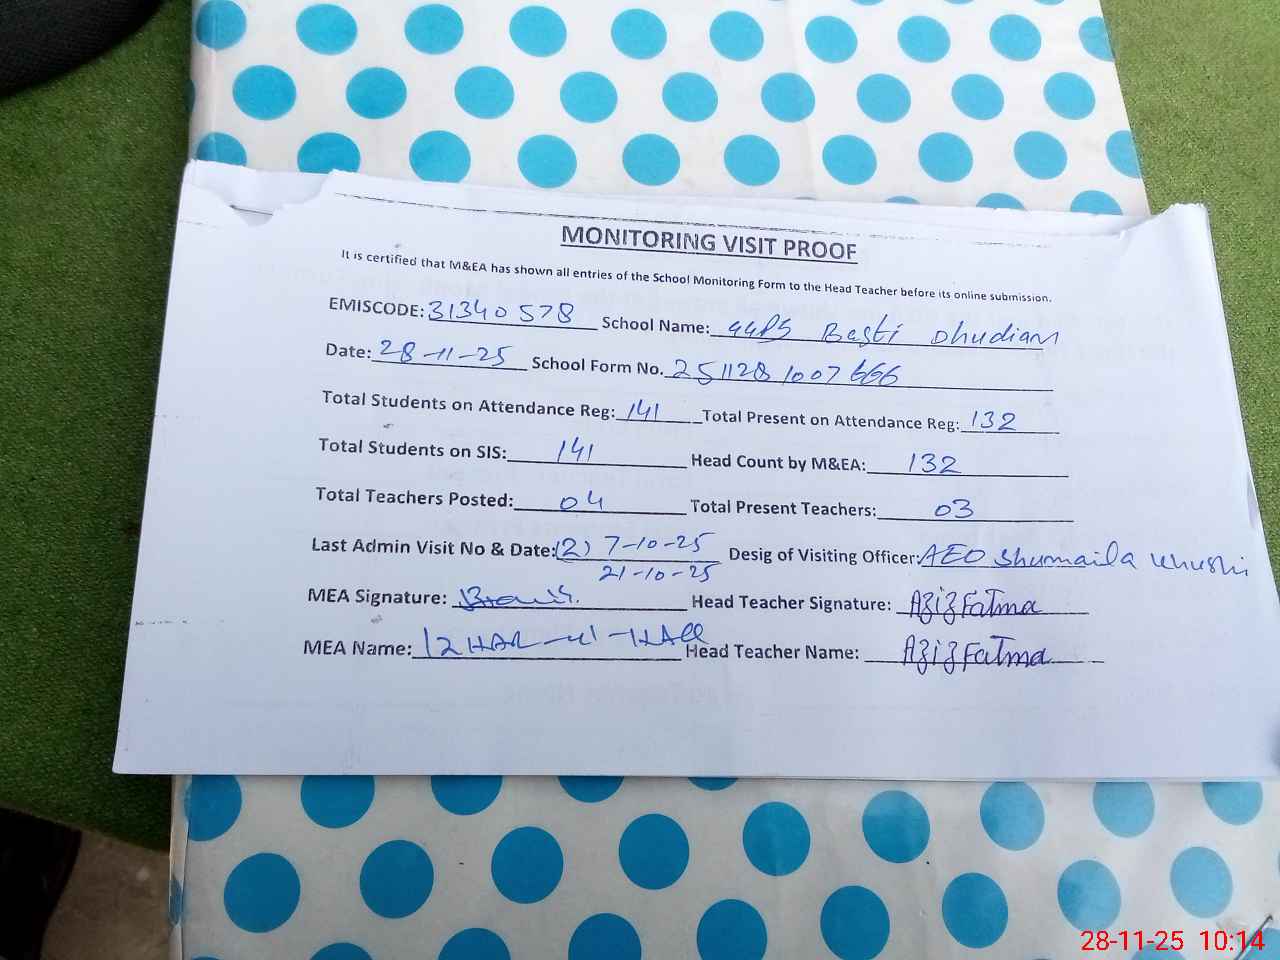 MONITORING VISIT PROOF
It is certified that M&EA has shown all entries of the School Monitoring Form to the Head Teacher before its online submission.
EMISCODE: 31340578 School Name: GGPS Basti Dhudian
Date: 28-11-25 School Form No. 251128 1007666
Total Students on Attendance Reg: 141 Total Present on Attendance Reg: 132
Total Students on SIS: 141 Head Count by M&EA: 132
Total Teachers Posted: 04 Total Present Teachers: 03
Last Admin Visit No & Date: (2) 7-10-25 Desig of Visiting Officer: AEO Shumaila Khushi
21-10-25
MEA Signature: Head Teacher Signature: Aziz Fatma
MEA Name: IZHAR-ul-HAQ Head Teacher Name: Aziz Fatma
28-11-25 10:14